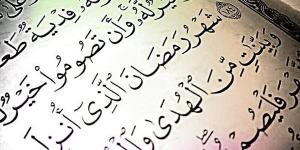 فِدْيَةٌ طَعَا
لَّهُۥ وَأَن تَصُومُوا۟ خَيْرٌ
شَهْرُ رَمَضَانَ ٱلَّذِىٓ أُنزِلَ
وَبَيِّنَٰتٍ مِّنَ ٱلْهُدَىٰ وَٱلْ
فَلْيَصُمْ